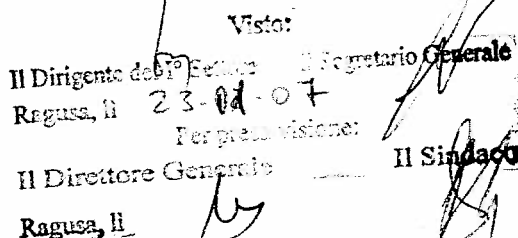 Visto:
Il Dirigente del 1° Settore Il Segretario Generale
Ragusa, li 23-01-07
Per presa visione:
Il Direttore Generale Il Sindaco
Ragusa, li